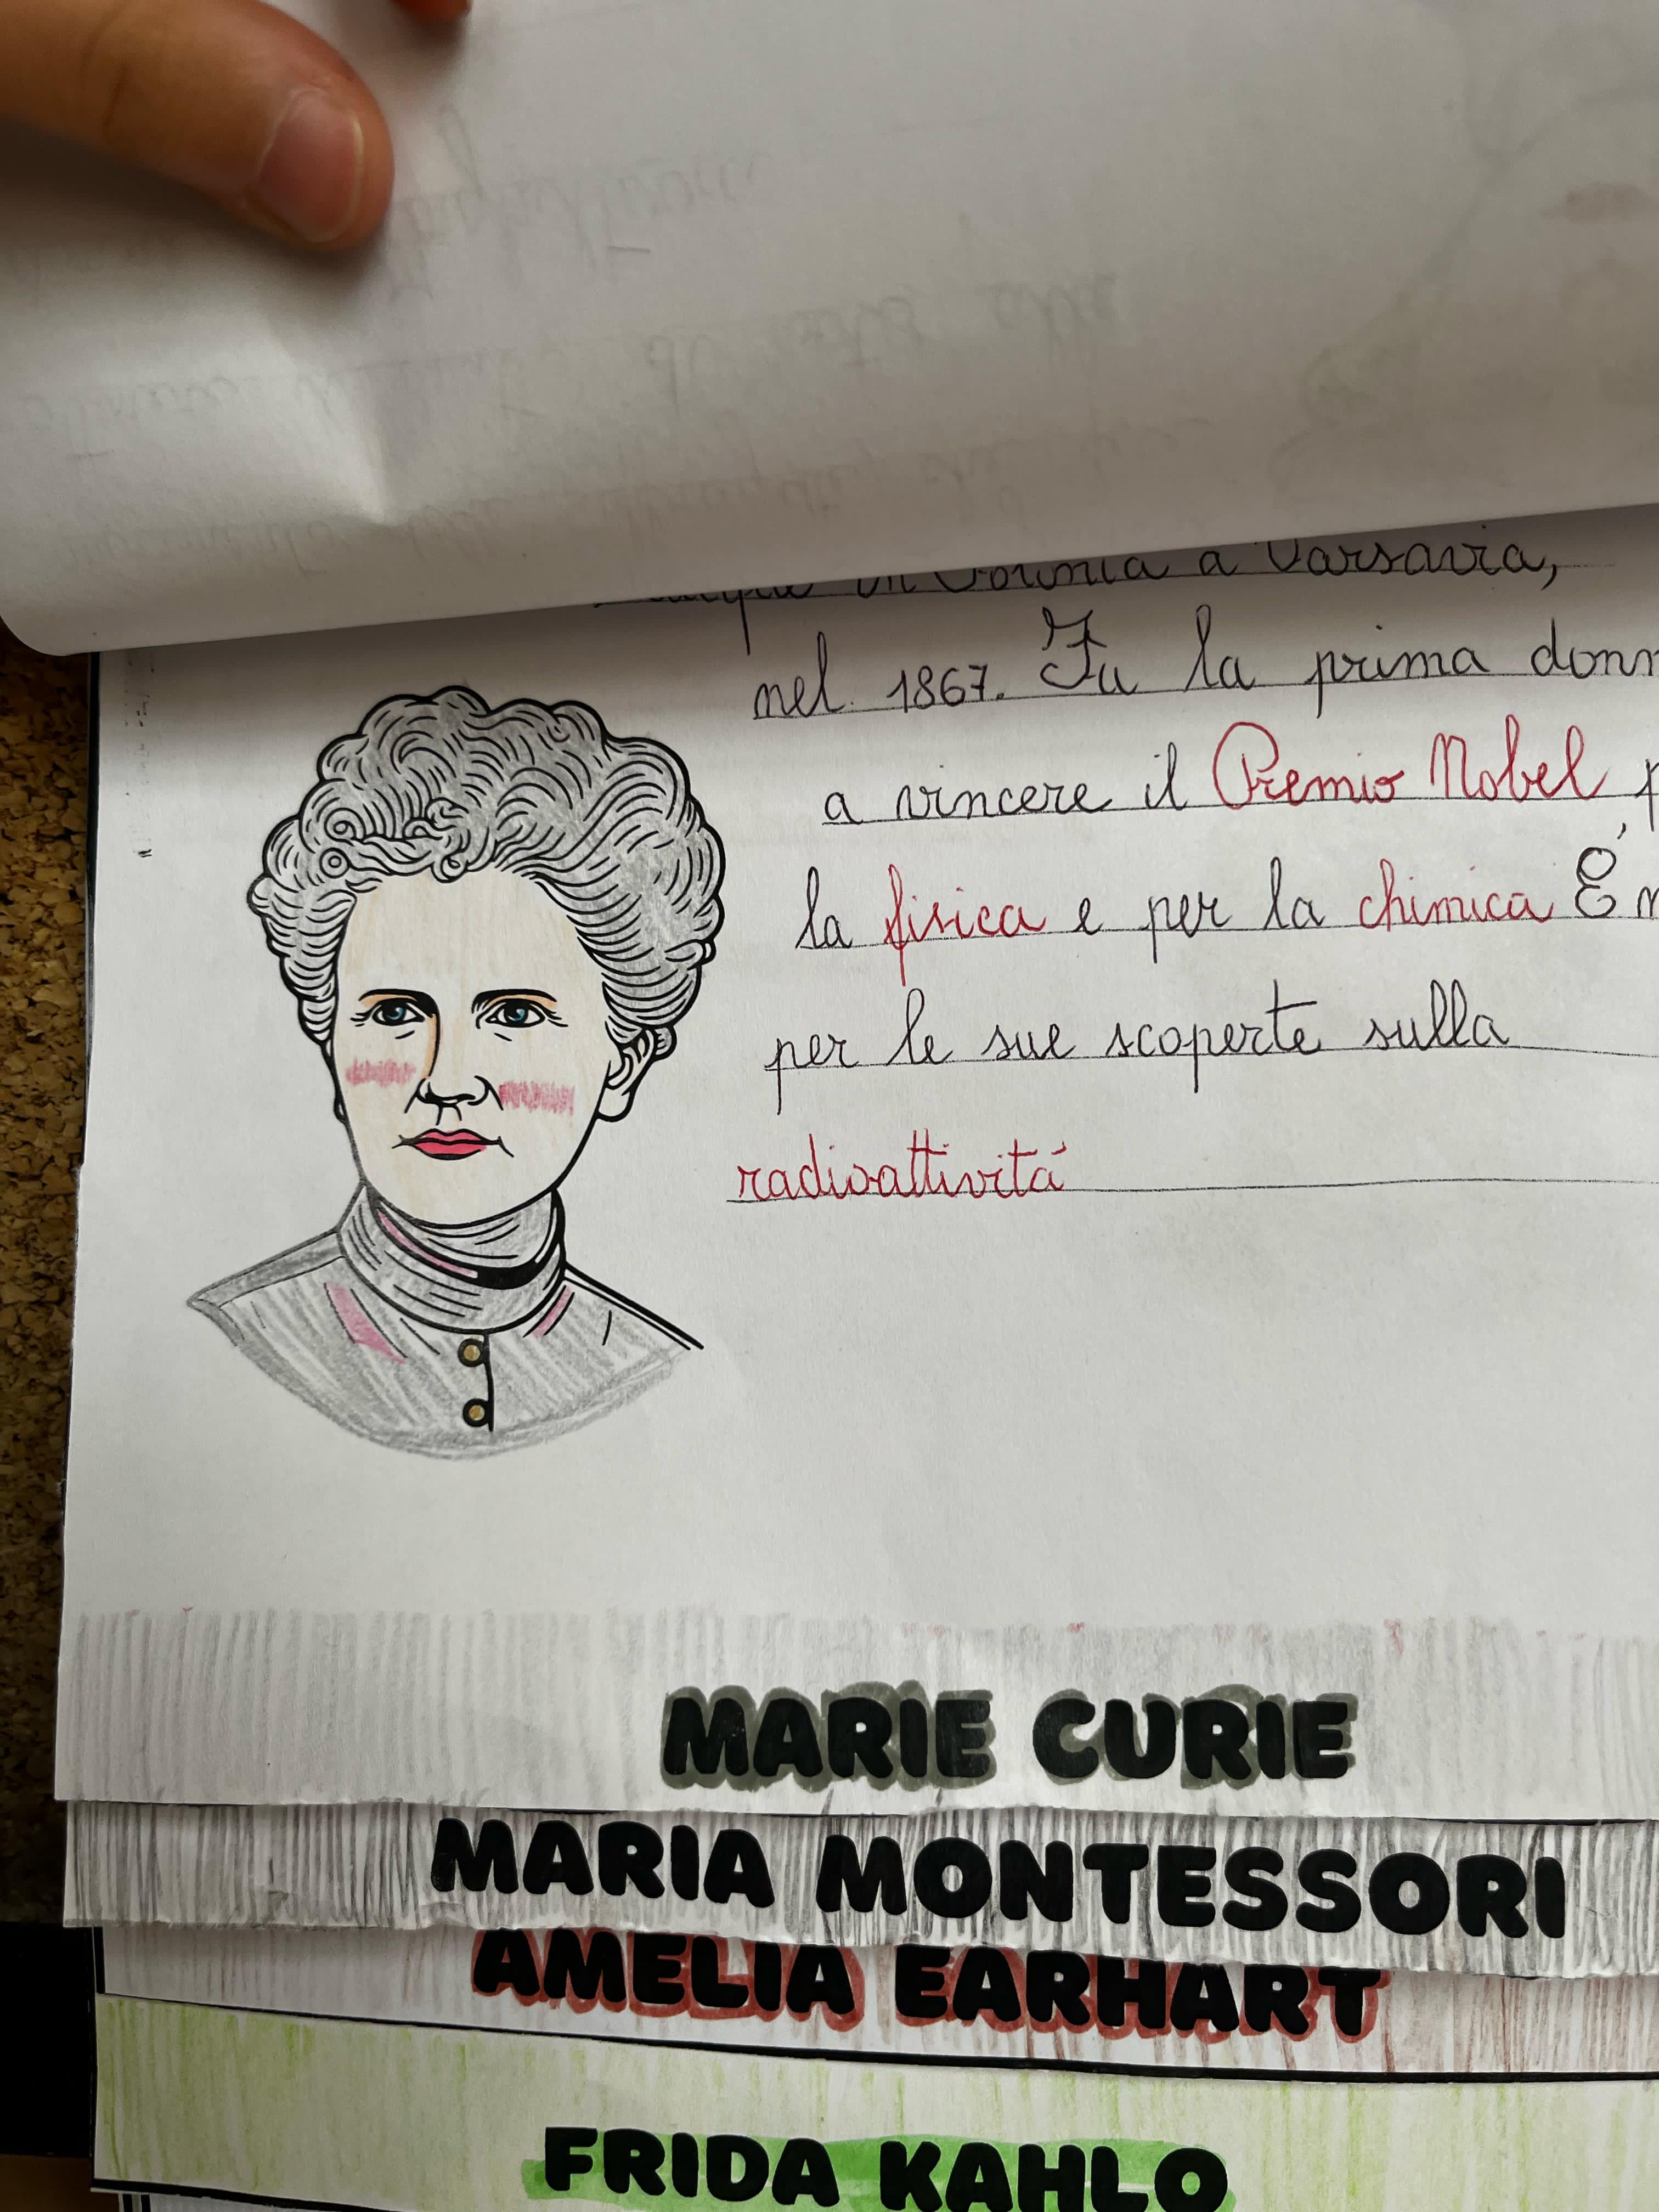 in Polonia a Varsavia,
nel 1867. Fu la prima donn
a vincere il Premio Nobel p
la fisica e per la chimica É n
per le sue scoperte sulla
radioattivitá
MARIE CURIE
MARIA MONTESSORI
AMELIA EARHART
FRIDA KAHLO